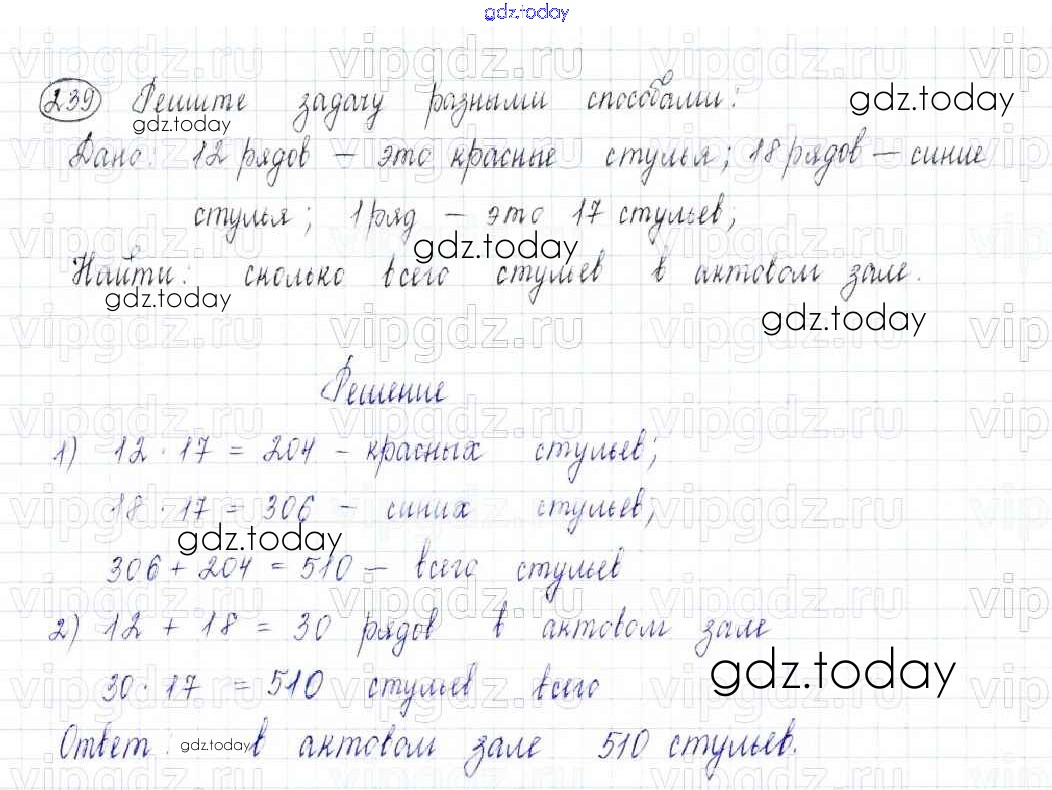 gdz.today
239 Решите задачу разными способами:
gdz.today
gdz.today
Дано: 12 рядов – это красные стулья; 18 рядов – синие
стулья; 1 ряд – это 17 стульев;
gdz.today
Найти: сколько всего стульев в актовом зале.
gdz.today
gdz.today
Решение
1) 12 · 17 = 204 – красных стульев;
18 · 17 = 306 – синих стульев;
gdz.today
306 + 204 = 510 – всего стульев
2) 12 + 18 = 30 рядов в актовом зале
gdz.today
30 · 17 = 510 стульев всего
Ответ: gdz.today в актовом зале 510 стульев.
vipgdz.ru